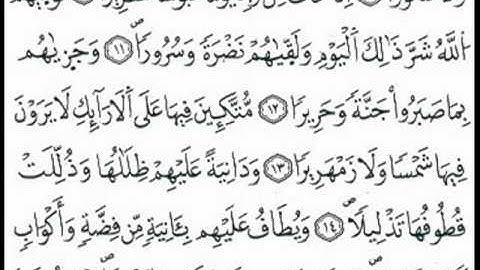 ٱللَّهُ شَرَّ ذَٰلِكَ ٱلْيَوْمِ وَلَقَّىٰهُمْ نَضْرَةً وَسُرُورًا ١١ وَجَزَىٰهُم
بِمَا صَبَرُوا۟ جَنَّةً وَحَرِيرًا ١٢ مُّتَّكِـِٔينَ فِيهَا عَلَى ٱلْأَرَآئِكِ لَا يَرَوْنَ
فِيهَا شَمْسًا وَلَا زَمْهَرِيرًا ١٣ وَدَانِيَةً عَلَيْهِمْ ظِلَٰلُهَا وَذُلِّلَتْ
قُطُوفُهَا تَذْلِيلًا ١٤ وَيُطَافُ عَلَيْهِم بِـَٔانِيَةٍ مِّن فِضَّةٍ وَأَكْوَابٍ